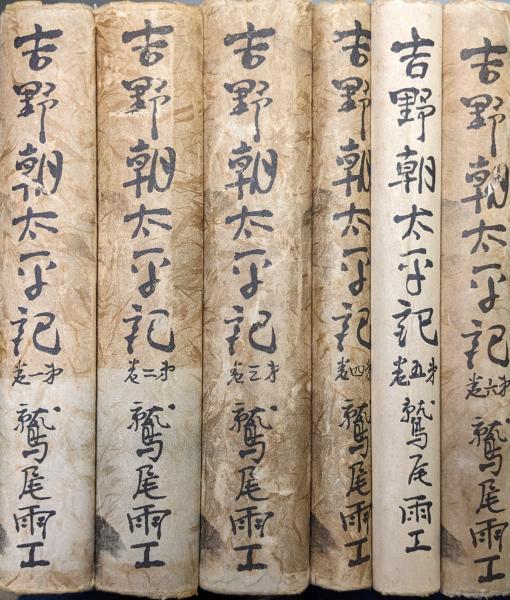 吉野朝太平記 第一巻 鷲尾雨工
吉野朝太平記 第二巻 鷲尾雨工
吉野朝太平記 第三巻 鷲尾雨工
吉野朝太平記 第四巻 鷲尾雨工
吉野朝太平記 第五巻 鷲尾雨工
吉野朝太平記 第六巻 鷲尾雨工